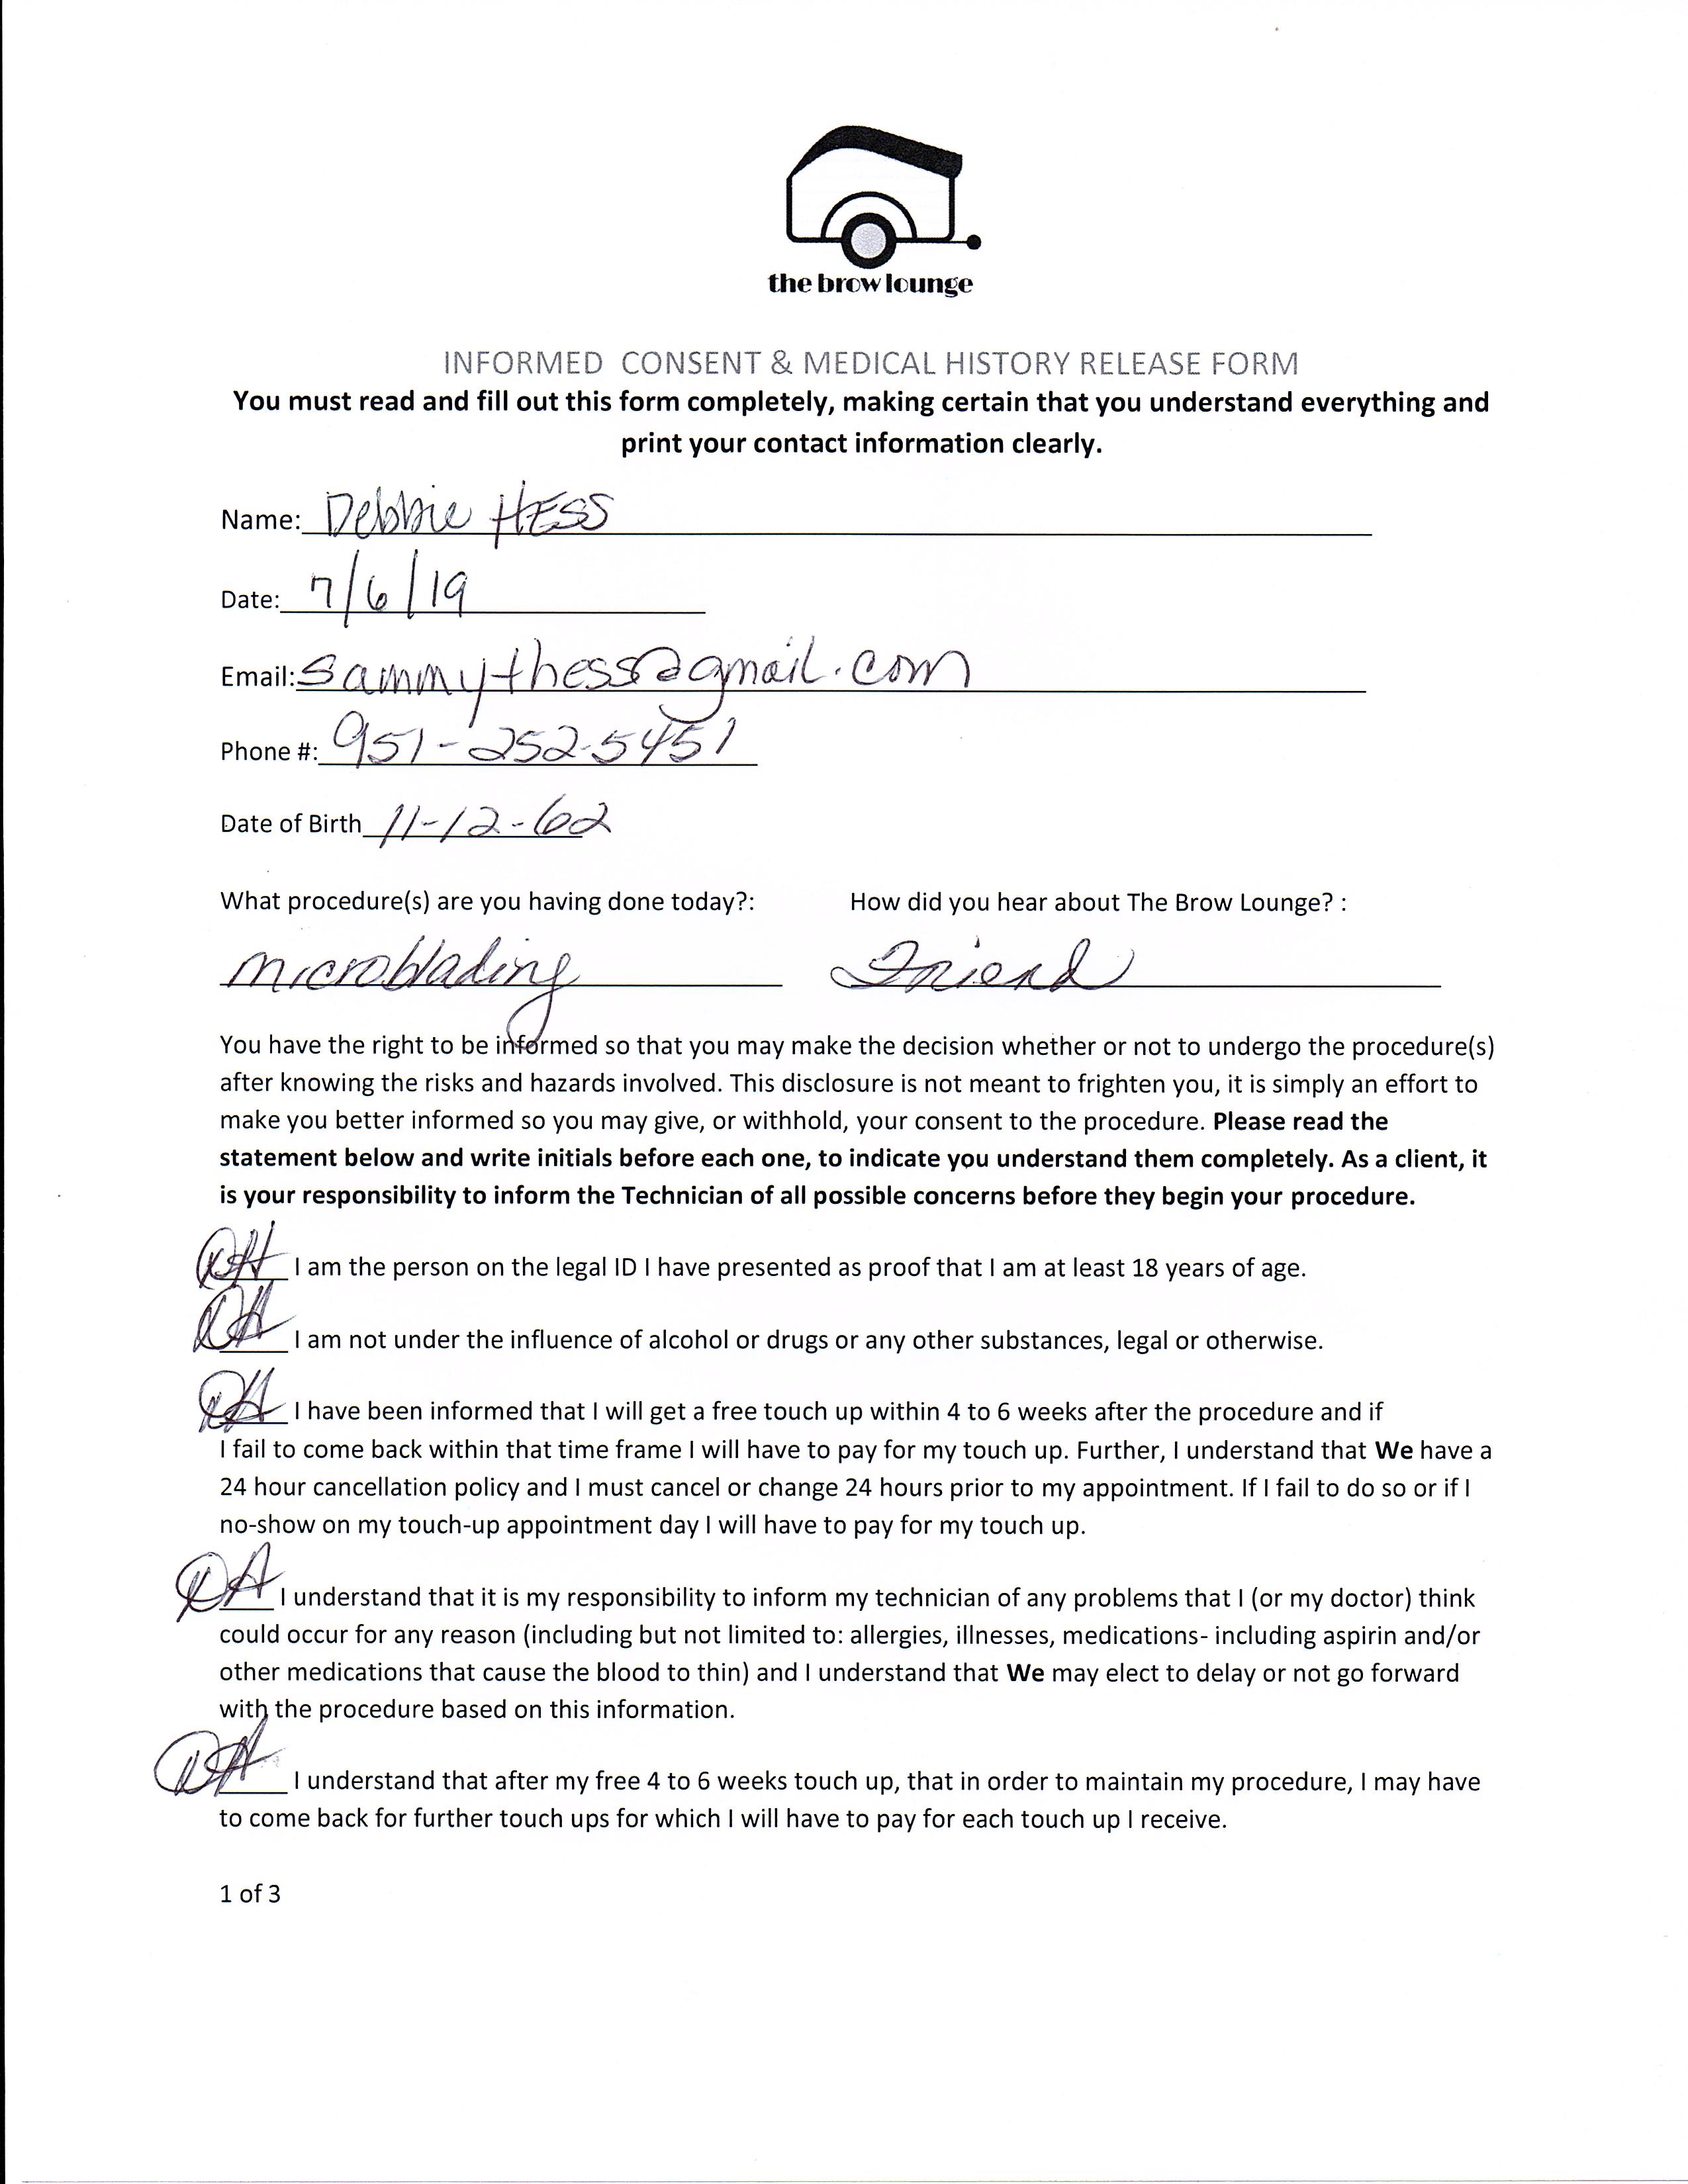 the brow lounge
INFORMED CONSENT & MEDICAL HISTORY RELEASE FORM
You must read and fill out this form completely, making certain that you understand everything and
print your contact information clearly.
Name: Debbie HESS
Date: 7/6/19
Email: sammythess@gmail.com
Phone #: 951-252-5451
Date of Birth 11-12-62
What procedure(s) are you having done today?: How did you hear about The Brow Lounge? :
microblading Friend
You have the right to be informed so that you may make the decision whether or not to undergo the procedure(s)
after knowing the risks and hazards involved. This disclosure is not meant to frighten you, it is simply an effort to
make you better informed so you may give, or withhold, your consent to the procedure. Please read the
statement below and write initials before each one, to indicate you understand them completely. As a client, it
is your responsibility to inform the Technician of all possible concerns before they begin your procedure.
DH I am the person on the legal ID I have presented as proof that I am at least 18 years of age.
DH I am not under the influence of alcohol or drugs or any other substances, legal or otherwise.
DH I have been informed that I will get a free touch up within 4 to 6 weeks after the procedure and if
I fail to come back within that time frame I will have to pay for my touch up. Further, I understand that We have a
24 hour cancellation policy and I must cancel or change 24 hours prior to my appointment. If I fail to do so or if I
no-show on my touch-up appointment day I will have to pay for my touch up.
DH I understand that it is my responsibility to inform my technician of any problems that I (or my doctor) think
could occur for any reason (including but not limited to: allergies, illnesses, medications- including aspirin and/or
other medications that cause the blood to thin) and I understand that We may elect to delay or not go forward
with the procedure based on this information.
DH I understand that after my free 4 to 6 weeks touch up, that in order to maintain my procedure, I may have
to come back for further touch ups for which I will have to pay for each touch up I receive.
1 of 3